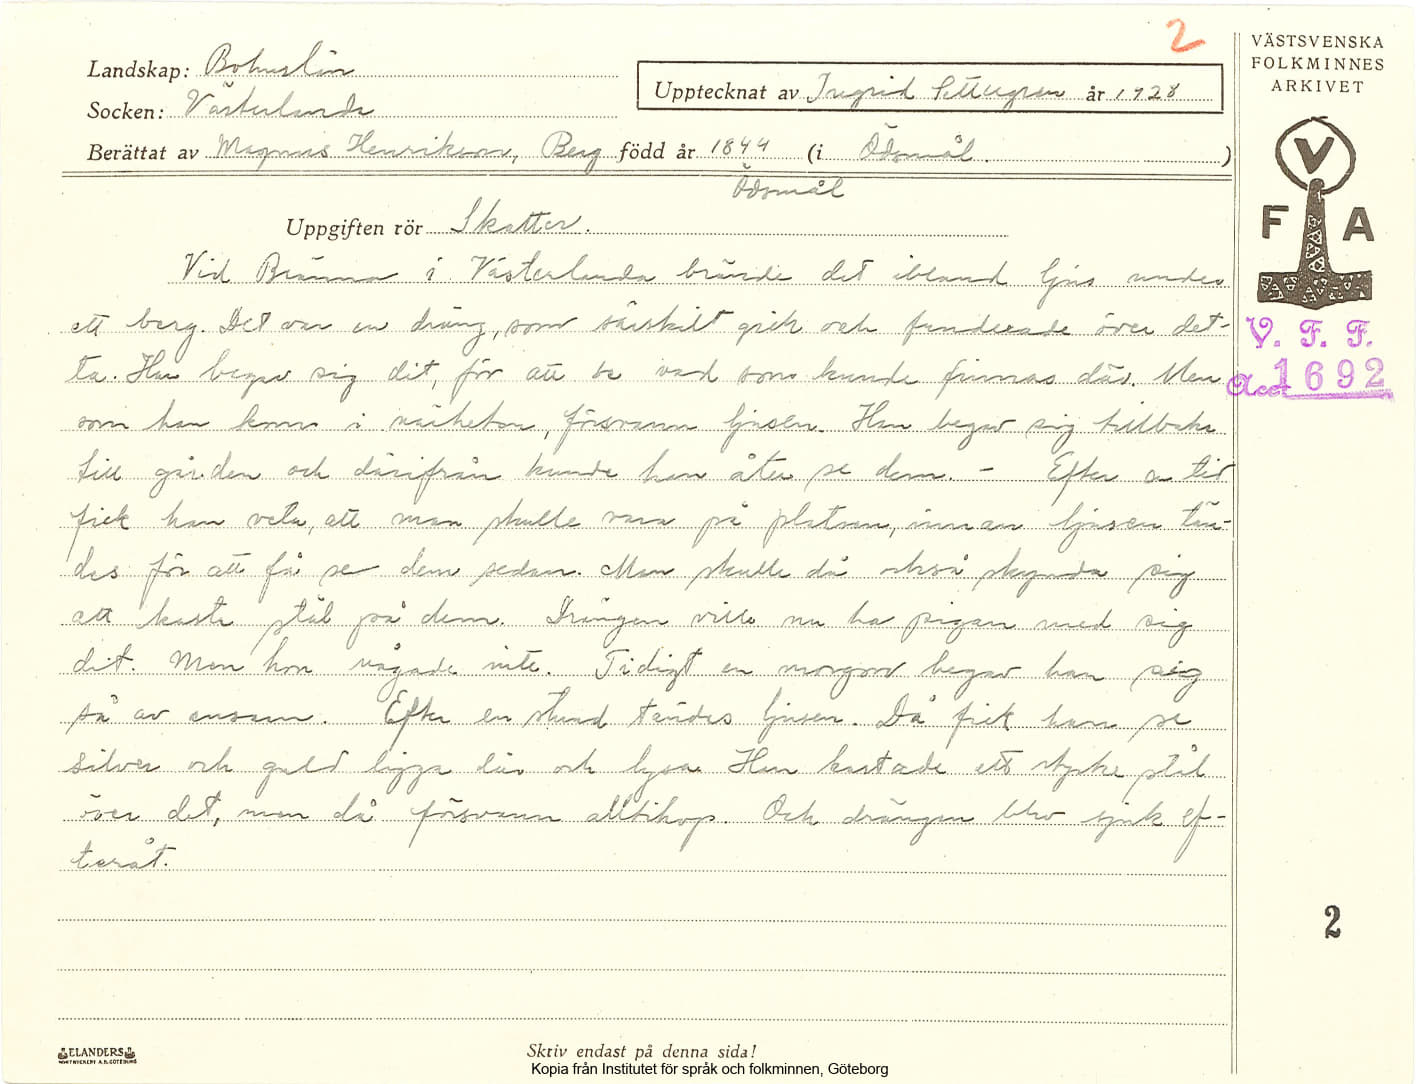 2
VÄSTSVENSKA
FOLKMINNES
ARKIVET
Landskap: Bohuslän
Upptecknat av Ingrid år 1928
Socken: Västerlanda
Berättat av Magnus Henrikson, Berg född år 1844 (i Ödsmål.)
Ödsmål
V
F A
Uppgiften rör Skatter.
Vid Bränna i Västerlanda brände det ibland ljus under
ett berg. Det var en dräng, som särskilt gick och funderade över det-
ta. Han begav sig dit, för att se vad som kunde finnas där. Men
som han kom i närheten, försvann ljusen. Han begav sig tillbaka
till gården och därifrån kunde han åter se dem. – Efter en tid
fick han veta, att man skulle vara på platsen, innan ljusen tän-
des för att få se dem sedan. Man skulle då också skynda sig
att kasta stål på dem. Drängen ville nu ha pigan med sig
dit. Men hon vågade inte. Tidigt en morgon begav han sig
så av ensam. Efter en stund tändes ljusen. Då fick han se
silver och guld ligga där och lysa. Han kastade ett stycke stål
över det, men då försvann alltihop. Och drängen blev sjuk ef-
teråt.
V. F. F.
Acc 1692
2
ELANDERS
Skriv endast på denna sida!
Kopia från Institutet för språk och folkminnen, Göteborg